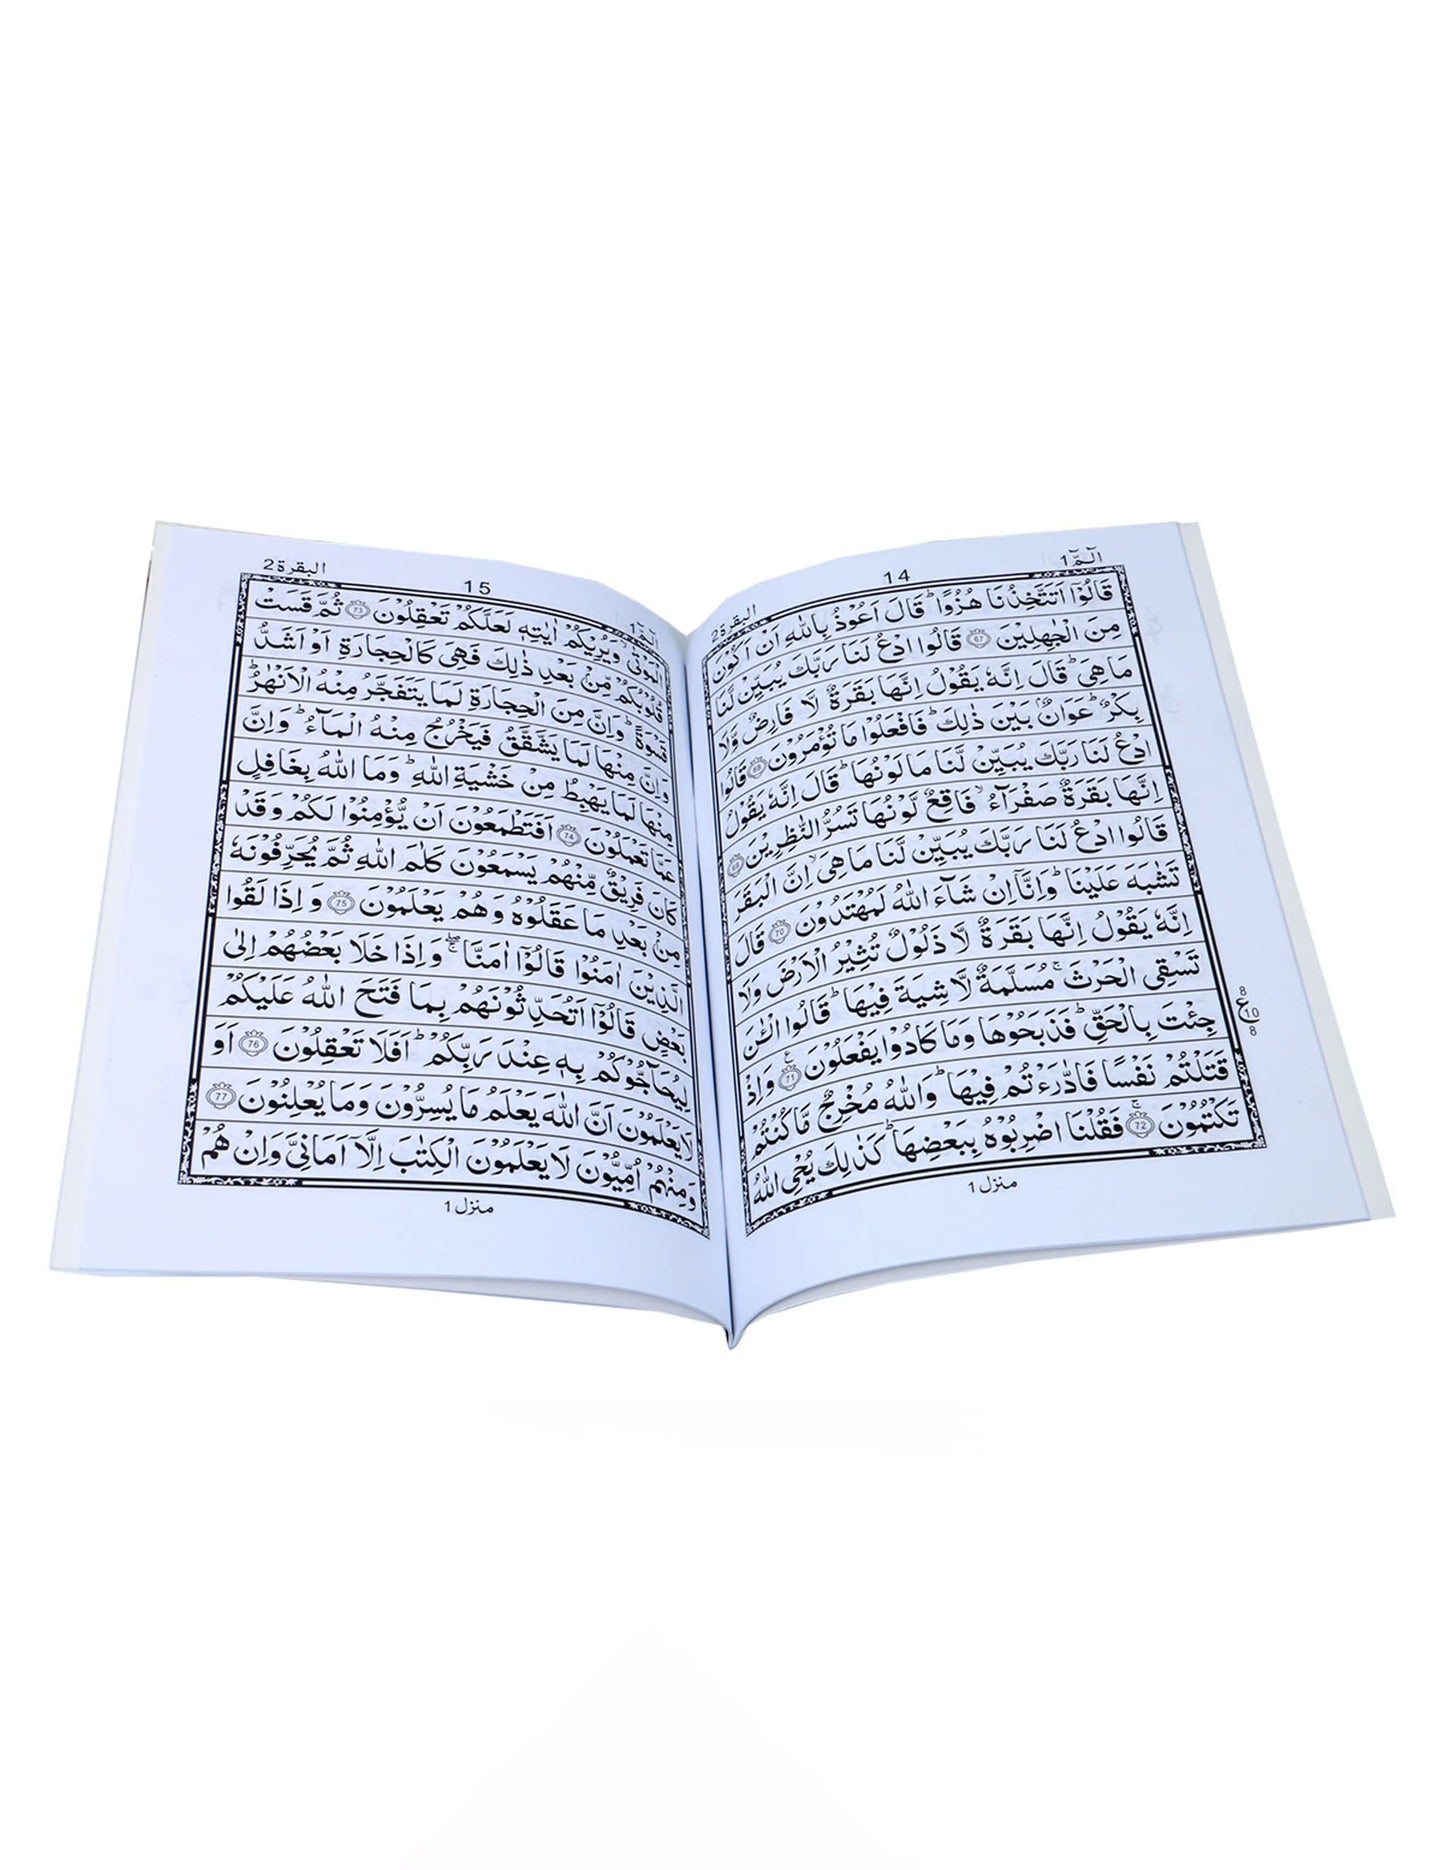 الٓمّٓ 1
14
البقرة 2
قَالُوْۤا اَتَتَّخِذُنَا هُزُوًا ؕ قَالَ اَعُوْذُ بِاللّٰهِ اَنْ اَكُوْنَ
مِنَ الْجٰهِلِيْنَ 67 قَالُوا ادْعُ لَنَا رَبَّكَ يُبَيِّنْ لَّنَا
مَا هِيَ ؕ قَالَ اِنَّهٗ يَقُوْلُ اِنَّهَا بَقَرَةٌ لَّا فَارِضٌ وَّلَا
بِكْرٌ ؕ عَوَانٌۢ بَيْنَ ذٰلِكَ ؕ فَافْعَلُوْا مَا تُؤْمَرُوْنَ 68 قَالُوا
ادْعُ لَنَا رَبَّكَ يُبَيِّنْ لَّنَا مَا لَوْنُهَا ؕ قَالَ اِنَّهٗ يَقُوْلُ
اِنَّهَا بَقَرَةٌ صَفْرَآءُ ۙ فَاقِعٌ لَّوْنُهَا تَسُرُّ النّٰظِرِيْنَ 69
قَالُوا ادْعُ لَنَا رَبَّكَ يُبَيِّنْ لَّنَا مَا هِيَ ۙ اِنَّ الْبَقَرَ
تَشٰبَهَ عَلَيْنَا ؕ وَاِنَّاۤ اِنْ شَآءَ اللّٰهُ لَمُهْتَدُوْنَ 70 قَالَ
اِنَّهٗ يَقُوْلُ اِنَّهَا بَقَرَةٌ لَّا ذَلُوْلٌ تُثِيْرُ الْاَرْضَ وَلَا
تَسْقِي الْحَرْثَ ۚ مُسَلَّمَةٌ لَّا شِيَةَ فِيْهَا ؕ قَالُوا الْـٰٔنَ
جِئْتَ بِالْحَقِّ ؕ فَذَبَحُوْهَا وَمَا كَادُوْا يَفْعَلُوْنَ 71 وَاِذْ
قَتَلْتُمْ نَفْسًا فَادّٰرَءْتُمْ فِيْهَا ؕ وَاللّٰهُ مُخْرِجٌ مَّا كُنْتُمْ
تَكْتُمُوْنَ 72 فَقُلْنَا اضْرِبُوْهُ بِبَعْضِهَا ؕ كَذٰلِكَ يُحْيِ اللّٰهُ
8
ع 10
8
منزل 1
الٓمّٓ 1
15
البقرة 2
الْمَوْتٰى ۙ وَيُرِيْكُمْ اٰيٰتِهٖ لَعَلَّكُمْ تَعْقِلُوْنَ 73 ثُمَّ قَسَتْ
قُلُوْبُكُمْ مِّنْۢ بَعْدِ ذٰلِكَ فَهِيَ كَالْحِجَارَةِ اَوْ اَشَدُّ
قَسْوَةً ؕ وَاِنَّ مِنَ الْحِجَارَةِ لَمَا يَتَفَجَّرُ مِنْهُ الْاَنْهٰرُ ؕ
وَاِنَّ مِنْهَا لَمَا يَشَّقَّقُ فَيَخْرُجُ مِنْهُ الْمَآءُ ؕ وَاِنَّ
مِنْهَا لَمَا يَهْبِطُ مِنْ خَشْيَةِ اللّٰهِ ؕ وَمَا اللّٰهُ بِغَافِلٍ
عَمَّا تَعْمَلُوْنَ 74 اَفَتَطْمَعُوْنَ اَنْ يُّؤْمِنُوْا لَكُمْ وَقَدْ
كَانَ فَرِيْقٌ مِّنْهُمْ يَسْمَعُوْنَ كَلٰمَ اللّٰهِ ثُمَّ يُحَرِّفُوْنَهٗ
مِنْۢ بَعْدِ مَا عَقَلُوْهُ وَهُمْ يَعْلَمُوْنَ 75 وَاِذَا لَقُوا
الَّذِيْنَ اٰمَنُوْا قَالُوْۤا اٰمَنَّا ۖۚ وَاِذَا خَلَا بَعْضُهُمْ اِلٰى
بَعْضٍ قَالُوْۤا اَتُحَدِّثُوْنَهُمْ بِمَا فَتَحَ اللّٰهُ عَلَيْكُمْ
لِيُحَآجُّوْكُمْ بِهٖ عِنْدَ رَبِّكُمْ ؕ اَفَلَا تَعْقِلُوْنَ 76 اَوَ
لَا يَعْلَمُوْنَ اَنَّ اللّٰهَ يَعْلَمُ مَا يُسِرُّوْنَ وَمَا يُعْلِنُوْنَ 77
وَمِنْهُمْ اُمِّيُّوْنَ لَا يَعْلَمُوْنَ الْكِتٰبَ اِلَّاۤ اَمَانِيَّ وَاِنْ هُمْ
منزل 1